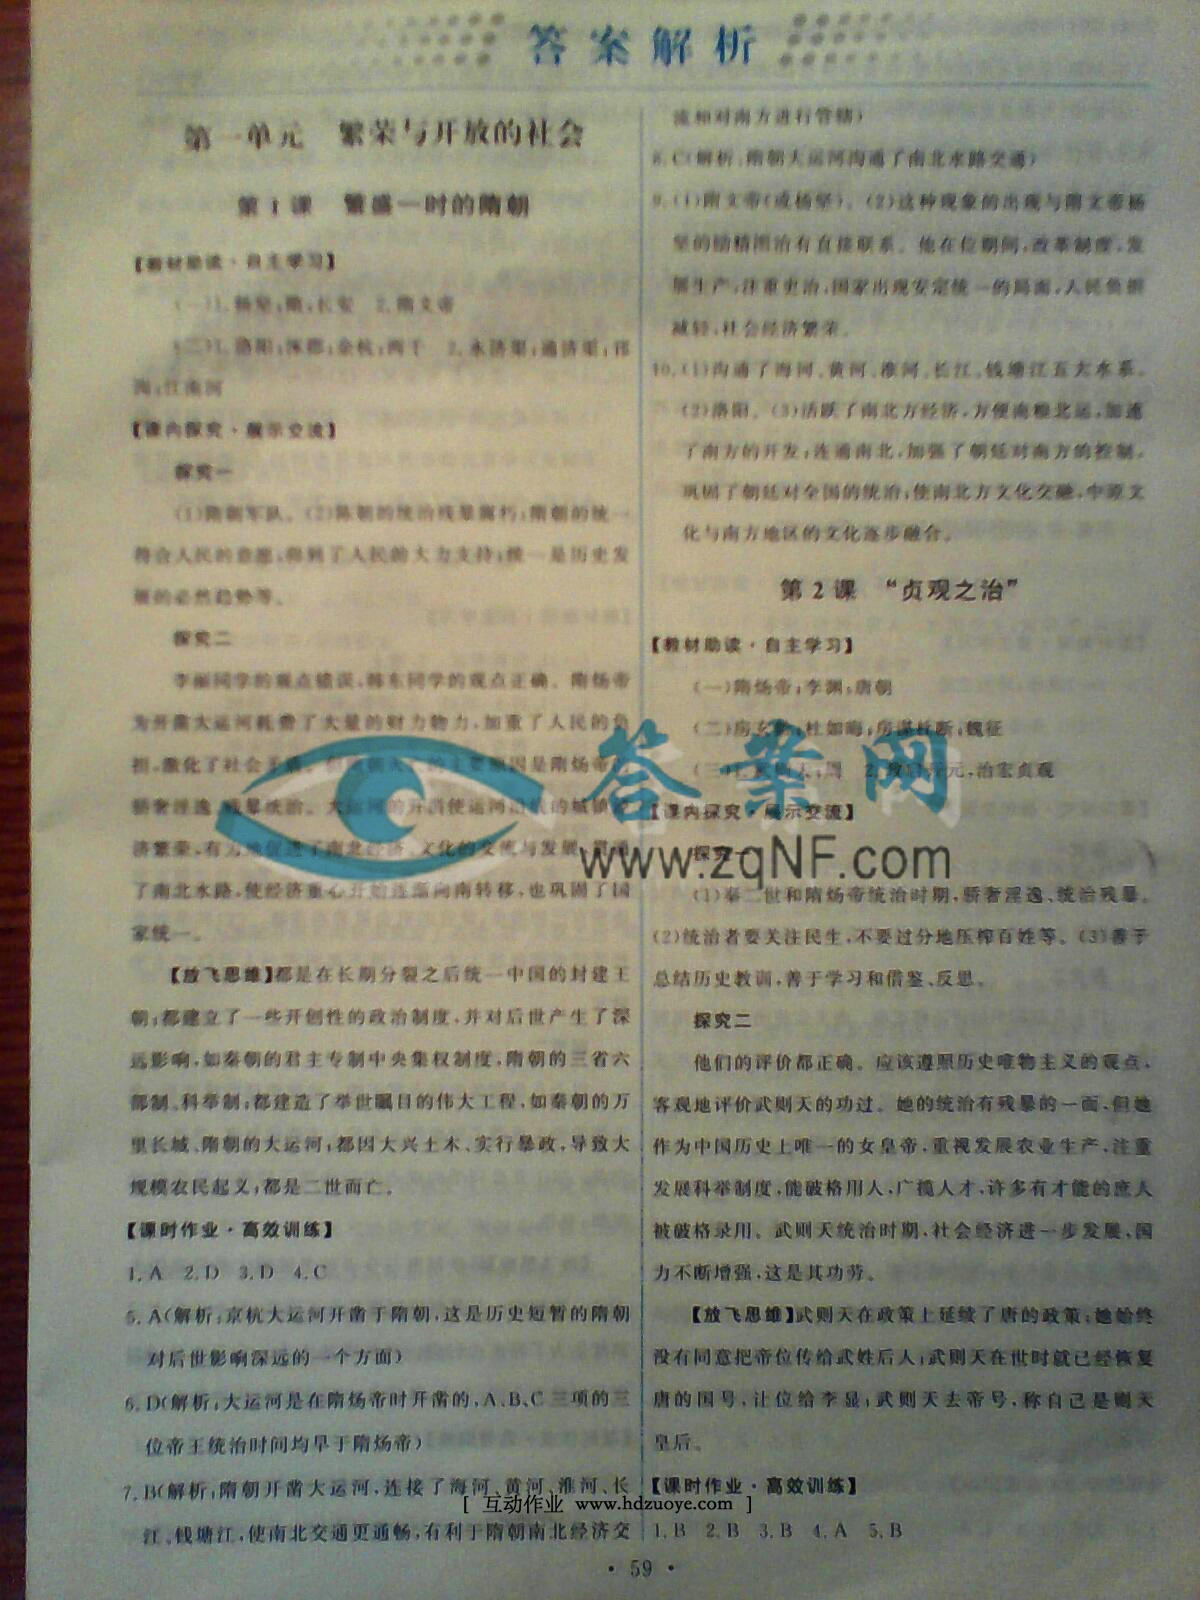 答案解析
第一单元 繁荣与开放的社会
第1课 繁盛一时的隋朝
【教材助读·自主学习】
(一)1.杨坚;隋;长安 2.隋文帝
(二)1.洛阳;涿郡;余杭;两千 2.永济渠;通济渠;邗
沟;江南河
【课内探究·展示交流】
探究一
(1)隋朝军队。(2)陈朝的统治残暴腐朽;隋朝的统一
符合人民的意愿,得到了人民的大力支持;统一是历史发
展的必然趋势等。
探究二
李丽同学的观点错误,韩东同学的观点正确。隋炀帝
为开凿大运河耗费了大量的财力物力,加重了人民的负
担,激化了社会矛盾。但隋朝灭亡的主要原因是隋炀帝的
骄奢淫逸、残暴统治。大运河的开凿使运河沿岸的城镇
济繁荣,有力地促进了南北经济、文化的交流与发展,
了南北水路,使经济重心开始逐渐向南转移,也巩固了国
家统一。
【放飞思维】都是在长期分裂之后统一中国的封建王
朝;都建立了一些开创性的政治制度,并对后世产生了深
远影响,如秦朝的君主专制中央集权制度,隋朝的三省六
部制、科举制;都建造了举世瞩目的伟大工程,如秦朝的万
里长城、隋朝的大运河;都因大兴土木、实行暴政,导致大
规模农民起义;都是二世而亡。
【课时作业·高效训练】
1.A 2.D 3.D 4.C
5.A(解析:京杭大运河开凿于隋朝,这是历史短暂的隋朝
对后世影响深远的一个方面)
6.D(解析:大运河是在隋炀帝时开凿的,A、B、C三项的三
位帝王统治时间均早于隋炀帝)
7.B(解析:隋朝开凿大运河,连接了海河、黄河、淮河、长
江、钱塘江,使南北交通更通畅,有利于隋朝南北经济交
流和对南方进行管辖)
8.C(解析:隋朝大运河沟通了南北水路交通)
9.(1)隋文帝(或杨坚)。(2)这种现象的出现与隋文帝杨
坚的励精图治有直接联系。他在位期间,改革制度,发
展生产,注重吏治,国家出现安定统一的局面,人民负担
减轻,社会经济繁荣。
10.(1)沟通了海河、黄河、淮河、长江、钱塘江五大水系。
(2)洛阳。(3)活跃了南北方经济,方便南粮北运,加速
了南方的开发;连通南北,加强了朝廷对南方的控制,
巩固了朝廷对全国的统治;使南北方文化交融,中原文
化与南方地区的文化逐步融合。
第2课 “贞观之治”
【教材助读·自主学习】
(一)隋炀帝;李渊;唐朝
(二)房玄龄;杜如晦;房谋杜断;魏征
(三)1.武则天;周 2.政启开元,治宏贞观
【课内探究·展示交流】
探究一
(1)秦二世和隋炀帝统治时期,骄奢淫逸、统治残暴。
(2)统治者要关注民生,不要过分地压榨百姓等。(3)善于
总结历史教训,善于学习和借鉴、反思。
探究二
他们的评价都正确。应该遵照历史唯物主义的观点,
客观地评价武则天的功过。她的统治有残暴的一面,但她
作为中国历史上唯一的女皇帝,重视发展农业生产,注重
发展科举制度,能破格用人,广揽人才,许多有才能的庶人
被破格录用。武则天统治时期,社会经济进一步发展,国
力不断增强,这是其功劳。
【放飞思维】武则天在政策上延续了唐的政策;她始终
没有同意把帝位传给武姓后人;武则天在世时就已经恢复
唐的国号,让位给李显;武则天去帝号,称自己是则天
皇后。
【课时作业·高效训练】
1.B 2.B 3.B 4.A 5.B
答案网
www.zqNF.com
[ 互动作业 www.hdzuoye.com ]
· 59 ·